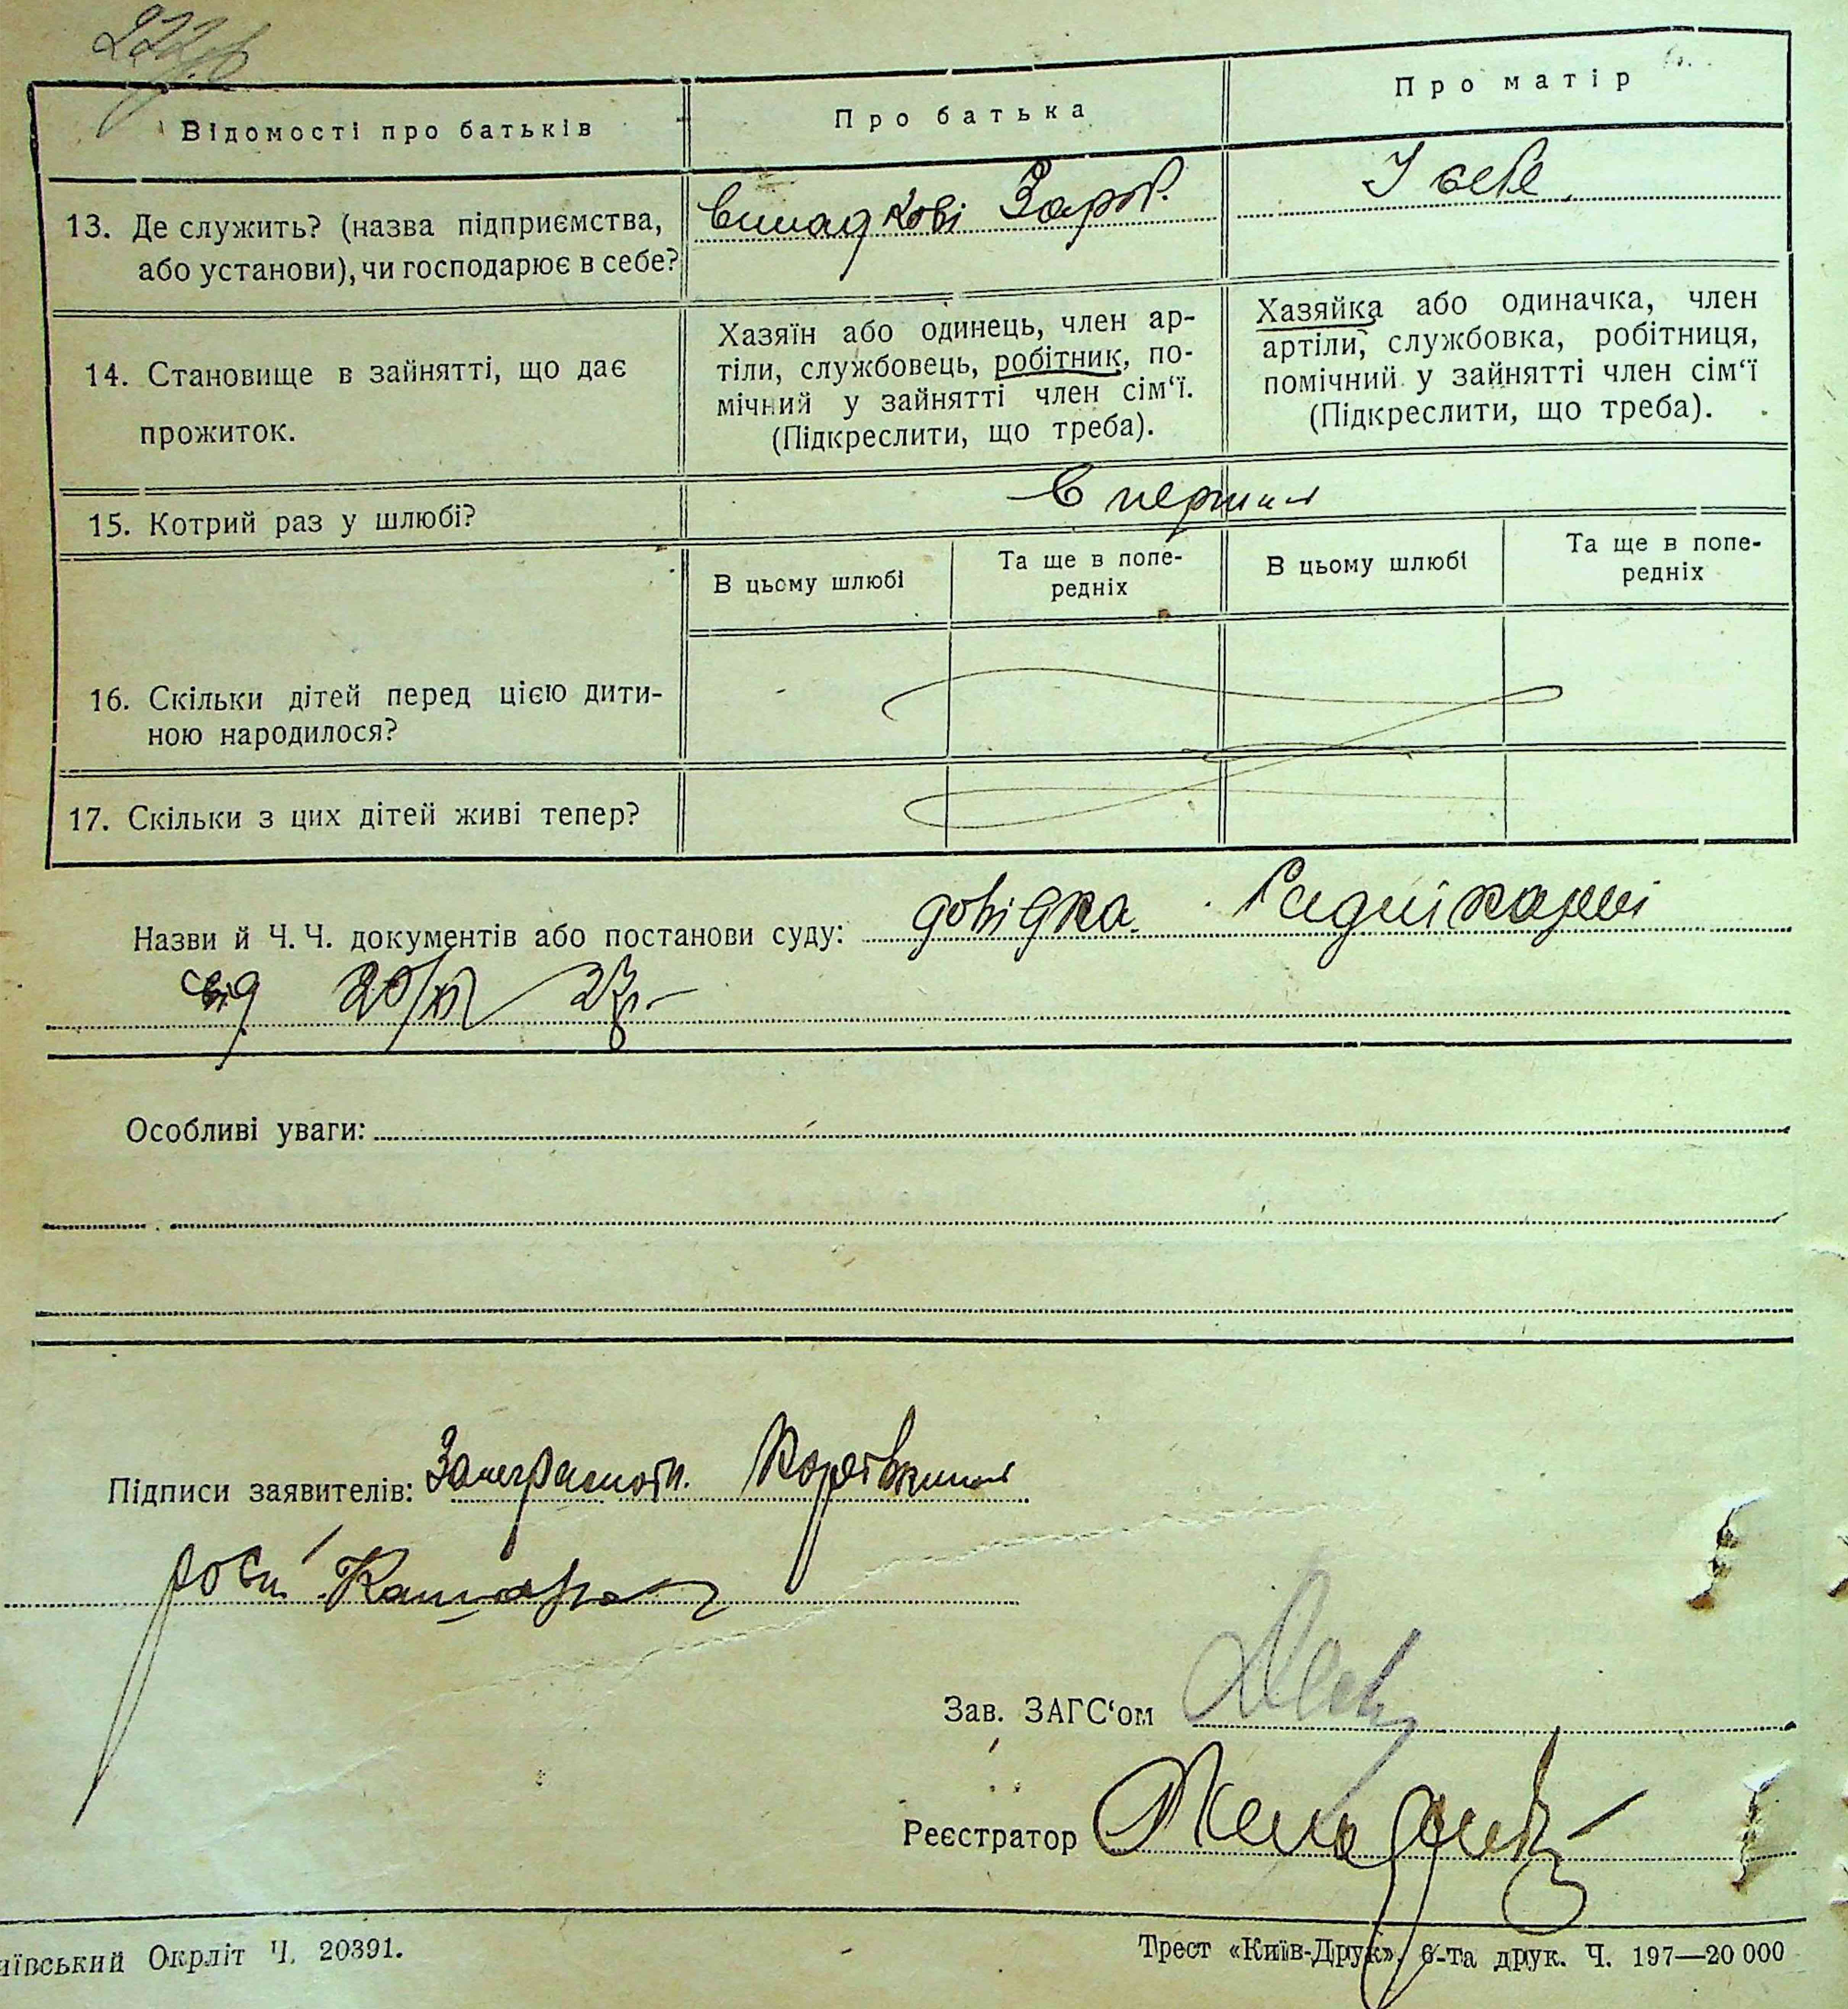 Відомості про батьків
Про батька
Про матір
13. Де служить? (назва підприємства,
або установи), чи господарює в себе?
випадкові Зароб.
У себе
14. Становище в зайнятті, що дає
прожиток.
Хазяїн або одинець, член ар-
тіли, службовець, робітник, по-
мічний у зайнятті член сім‘ї.
(Підкреслити, що треба).
Хазяйка або одиначка, член
артіли, службовка, робітниця,
помічний у зайнятті член сім‘ї
(Підкреслити, що треба).
15. Котрий раз у шлюбі?
В перши
В цьому шлюбі
Та ще в попе-
редніх
В цьому шлюбі
Та ще в попе-
редніх
16. Скільки дітей перед цією дити-
ною народилося?
17. Скільки з цих дітей живі тепер?
Назви й Ч. Ч. документів або постанови суду: довідка
від 20/XII 27р.
Особливі уваги:
Підписи заявителів:
Зав. ЗАГС‘ом
Реєстратор
иївський Окрліт Ч. 20391.
Трест «Київ-Друк», 6-та друк. Ч. 197—20 000